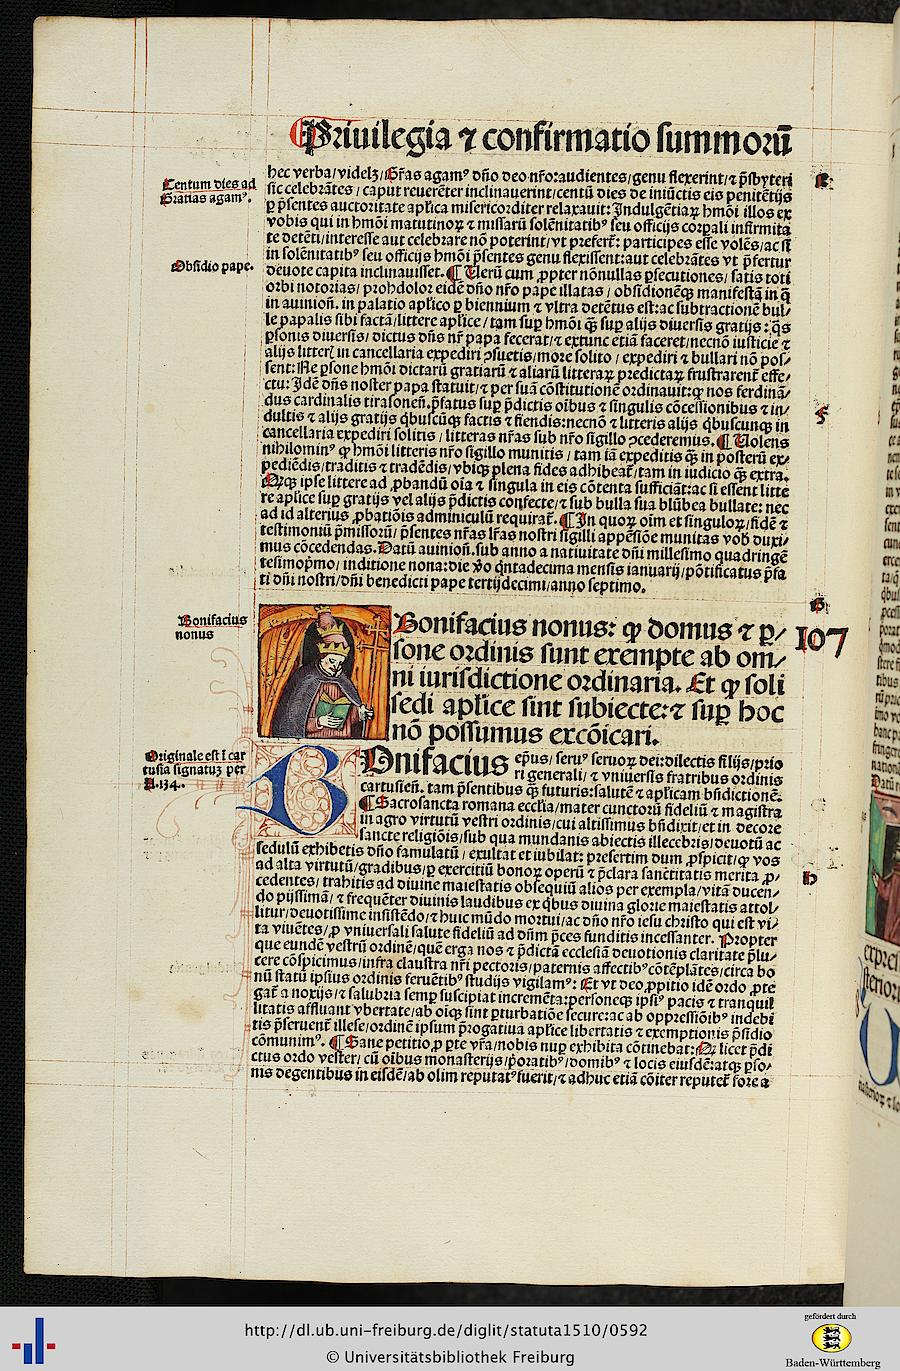 Priuilegia ⁊ confirmatio summorū
Centum dies ad
Gratias agamꝰ.
hec verba/ videlꝫ/ Gr̄as agamꝰ dn̄o deo nr̄o: audientes/ genu flexerint/ ⁊ p̄sbyteri
sic celebrātes / caput reuerēter inclinauerint/ centū dies de iniūctis eis penitētijs
ꝑ p̄sentes auctoritate apl̄ica misericorditer relaxauit: Indulgētiaꝝ hm̄oi illos ex
vobis qui in hm̄oi matutinoꝝ ⁊ missarū solēnitatibꝰ seu officijs corpali infirmita
te detēti/ interesse aut celebrare nō poterint/ vt prefert᷑: participes esse volēs/ ac si
Obsidio pape.
in solēnitatibꝰ seu officijs hm̄oi p̄sentes genu flexissent: aut celebrātes vt p̄fertur
deuote capita inclinauisset. ¶ Uerū cum ꝓpter nōnullas ꝑsecutiones/ satis toti
orbi notorias/ prohdolor eidē dn̄o nr̄o pape illatas / obsidionēqꝫ manifestā in q̄
in auinioñ. in palatio apl̄ico ꝑ biennium ⁊ vltra detētus est: ac subtractionē bul-
le papalis sibi factā/ littere apl̄ice / tam suꝑ hm̄oi q̄ꝫ suꝑ alijs diuersis gratijs : q̄s
ꝑsonis diuersis/ dictus dn̄s nr̄ papa fecerat/ ⁊ extunc etiā faceret/ necnō iusticie ⁊
alijs litter̄ in cancellaria expediri ꝯsuetis/ more solito / expediri ⁊ bullari nō pos/
sent: Ne ꝑsone hm̄oi dictarū gratiarū ⁊ aliarū litteraꝝ predictaꝝ frustrarent᷑ effe/
ctu: Idē dn̄s noster papa statuit/ ⁊ per suā cōstitutionē ordinauit: ꝙ nos ferdinā/
dus cardinalis tirasoneñ. p̄fatus suꝑ p̄dictis oībus ⁊ singulis cōcessionibus ⁊ in/
dultis ⁊ alijs gratijs q̄buscūqꝫ factis ⁊ fiendis: necnō ⁊ litteris alijs q̄buscunqꝫ in
cancellaria expediri solitis / litteras nr̄as sub nr̄o sigillo ꝯcederemus. ¶ Uolens
nihilominꝰ ꝙ hm̄oi litteris nr̄o sigillo munitis / tam iā expeditis q̄ꝫ in posterū ex/
pediēdis/ traditis ⁊ tradēdis/ vbiqꝫ plena fides adhibeat᷑/ tam in iudicio q̄ꝫ extra.
Atqꝫ ipse littere ad ꝓbandū oīa ⁊ singula in eis cōtenta sufficiāt: ac si essent litte
re apl̄ice suꝑ gratijs vel alijs p̄dictis confecte/ ⁊ sub bulla sua blūbea bullate: nec
ad id alterius ꝓbatiōis adminiculū requirat᷑. ¶ In quoꝝ oīm et singuloꝝ/ fidē ⁊
testimoniū p̄missorū/ p̄sentes nr̄as lr̄as nostri sigilli appēsiōe munitas vob duxi/
mus cōcedendas. Datū auinioñ. sub anno a natiuitate dn̄i millesimo quadringē
tesimop̄mo/ inditione nona: die v̄o q̄ntadecima mensis ianuarij/ pōtificatus p̄fa
ti dn̄i nostri/ dn̄i benedicti pape tertijdecimi/ anno septimo.
Bonifacius
nonus
Bonifacius nonus: ꝙ domus ⁊ ꝑ/
sone ordinis sunt exempte ab om/
ni iurisdictione ordinaria. Et ꝙ soli
sedi apl̄ice sint subiecte: ⁊ suꝑ hoc
nō possumus excōicari.
107
Originale est ī car
tusia signatuꝫ per
A.134.
BOnifacius ep̄us/ seruꝰ seruoꝝ dei: dilectis filijs/ prio
ri generali/ ⁊ vniuersis fratribus ordinis
cartusieñ. tam p̄sentibus q̄ꝫ futuris: salutē ⁊ apl̄icam bn̄dictionē.
¶ Sacrosancta romana eccl̄ia/ mater cunctorū fideliū ⁊ magistra
in agro virtutū vestri ordinis/ cui altissimus bn̄dixit/ et in decore
sancte religiōis/ sub qua mundanis abiectis illecebris/ deuotū ac
sedulū exhibetis dn̄o famulatū / exultat et iubilat: presertim dum ꝓspicit/ ꝙ vos
ad alta virtutū/ gradibus/ ꝑ exercitiū bonoꝝ operū ⁊ p̄clara sanctitatis merita ꝓ/
cedentes/ trahitis ad diuine maiestatis obsequiū alios per exempla/ vitā ducen/
do pijssimā/ ⁊ frequēter diuinis laudibus ex q̄bus diuina glorie maiestatis attol/
litur/ deuotissime insistēdo/ ⁊ huic mūdo mortui/ ac dn̄o nr̄o iesu christo qui est vi/
ta viuētes/ ꝓ vniuersali salute fideliū ad dn̄m p̄ces funditis incessanter. Propter
que eundē vestrū ordinē/ quē erga nos ⁊ p̄dictā ecclesiā deuotionis claritate p̄lu/
cere cōspicimus/ infra claustra nr̄i pectoris/ paternis affectibꝰ cōtēplātes/ circa bo
nū statū ipsius ordinis feruētibꝰ studijs vigilamꝰ: Et vt deo ꝓpitio idē ordo ꝓte
gat᷑ a noxijs/ ⁊ salubria semꝑ suscipiat incremēta: personeqꝫ ipsiꝰ pacis ⁊ tranquil
litatis affluant vbertate/ ab oīqꝫ sint ꝑturbatiōe secure: ac ab oppressiōibꝰ indebi
tis p̄seruent᷑ illese/ ordinē ipsum p̄rogatiua apl̄ice libertatis ⁊ exemptionis p̄sidio
cōmunimꝰ. ¶ Sane petitio ꝓ ꝑte vr̄a/ nobis nuꝑ exhibita cōtinebat: Qꝫ licet p̄di
ctus ordo vester/ cū oībus monasterijs/ p̄oratibꝰ/ domibꝰ ⁊ locis eiusdē: atqꝫ ꝑso/
nis degentibus in eisdē/ ab olim reputatꝰ fuerit/ ⁊ adhuc etiā cōiter reputet᷑ fore a
http://dl.ub.uni-freiburg.de/diglit/statuta1510/0592
© Universitätsbibliothek Freiburg
gefördert durch
Baden-Württemberg